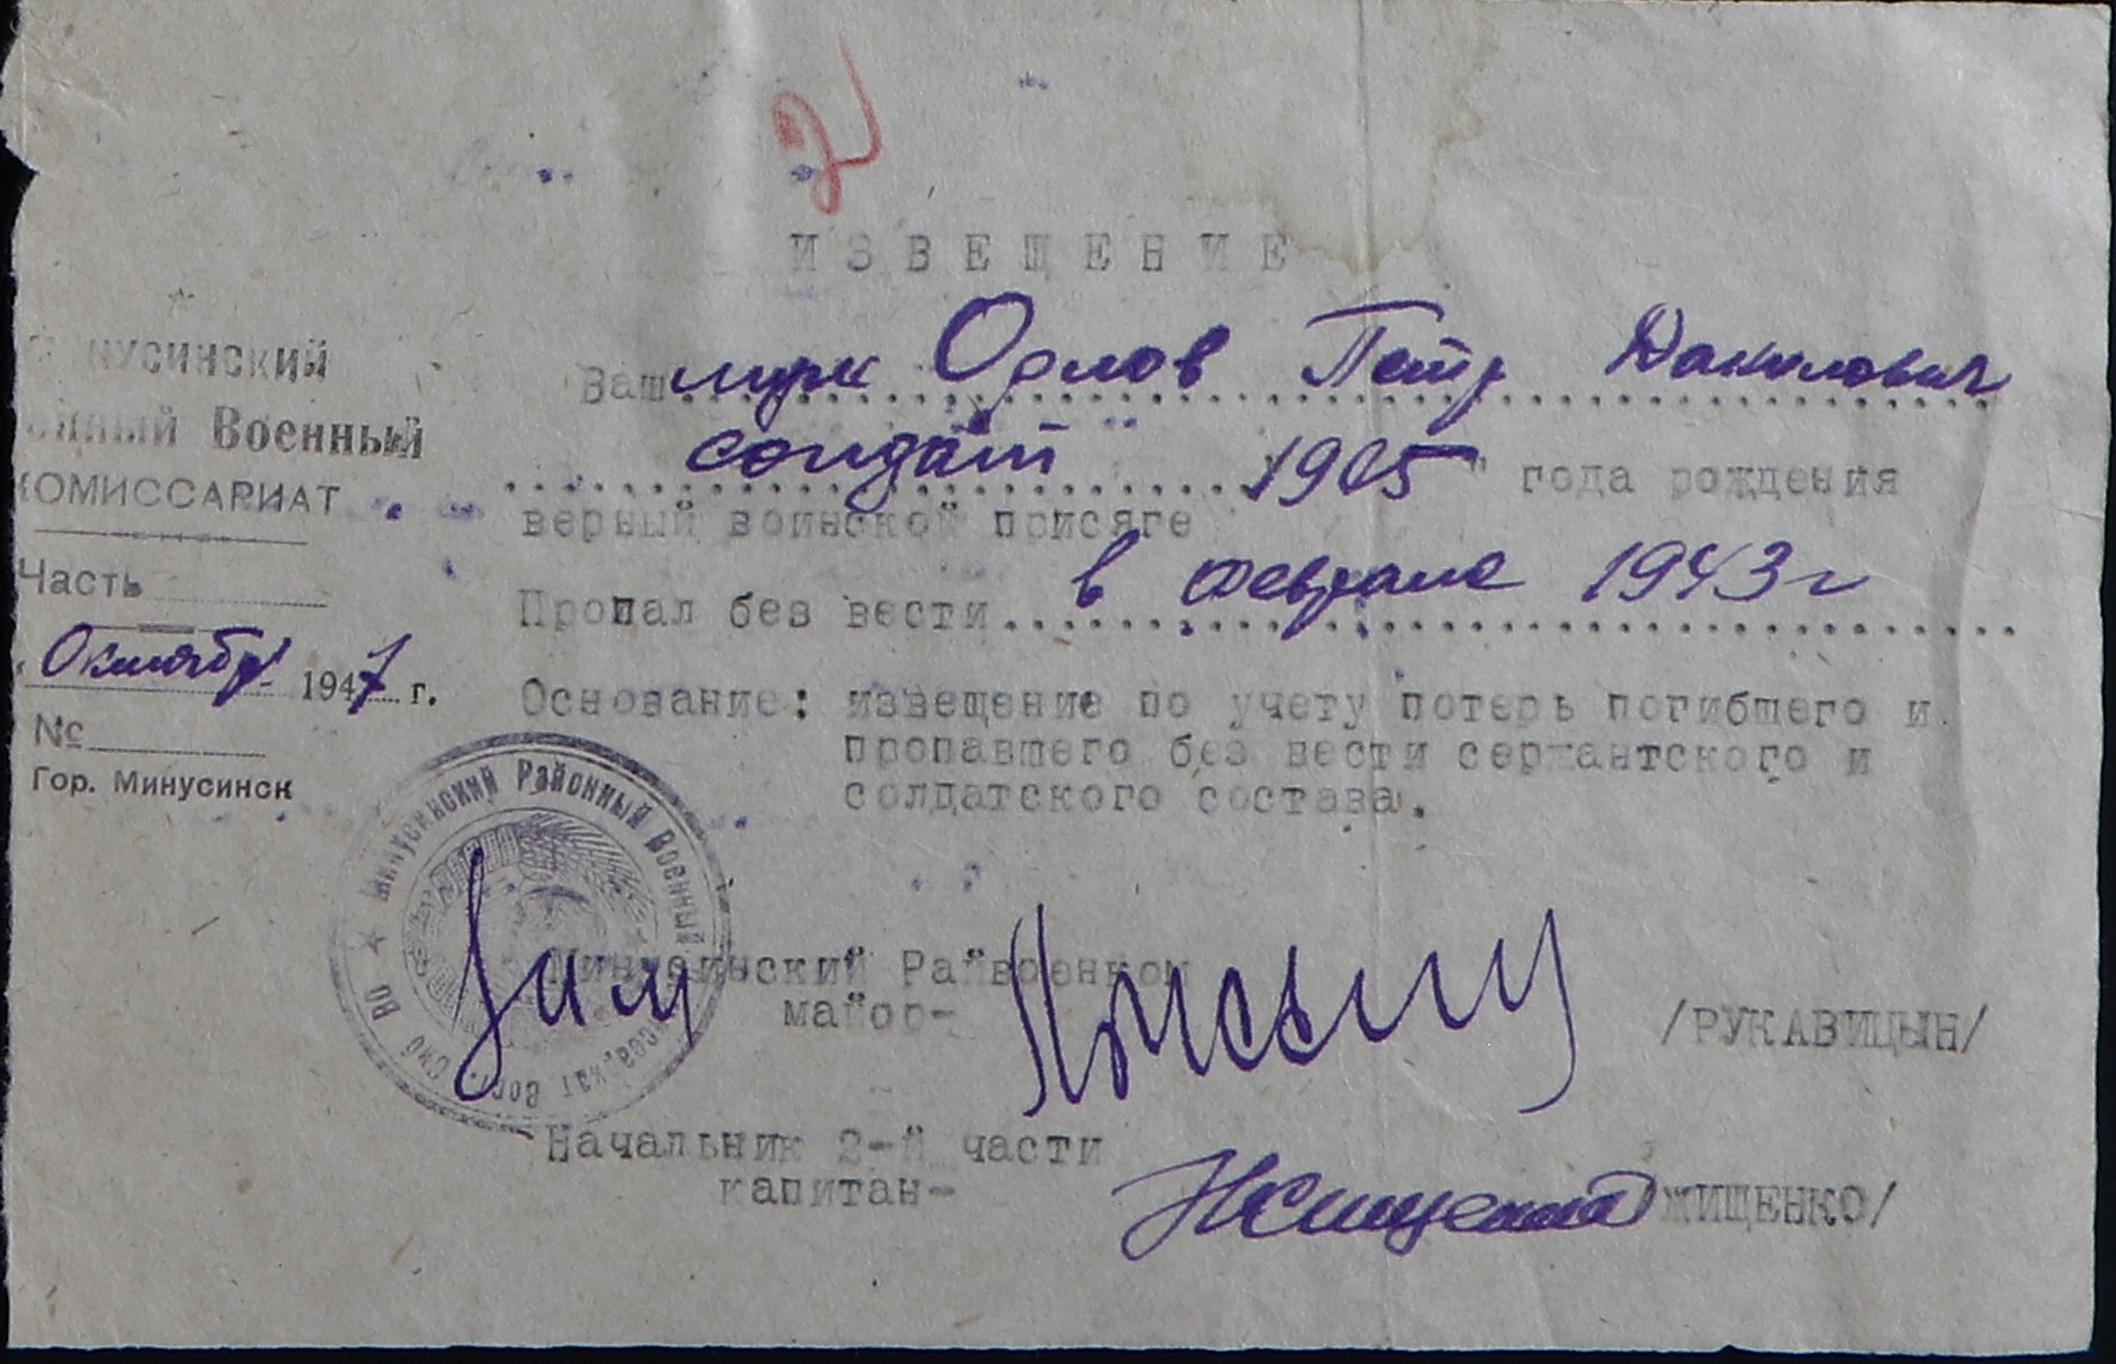 2
ИЗВЕЩЕНИЕ
нусинский
Военный
ОМИССАРИАТ
Часть
Октября 1947 г.
№
Гор. Минусинск
Ваш муж Орлов Петр Данилович
солдат 1905 " года рождения
верный воинской присяге
Пропал без вести в феврале 1943 г
Основание: извещение по учету потерь погибшего и
пропавшего без вести сержантского и
солдатского состава.
Минусинский Районный Военный
Сиб ВО
Минусинский Райвоенком
майор-
/РУКАВИЦЫН/
Начальник 2-й части
капитан-
ЖИЩЕНКО/